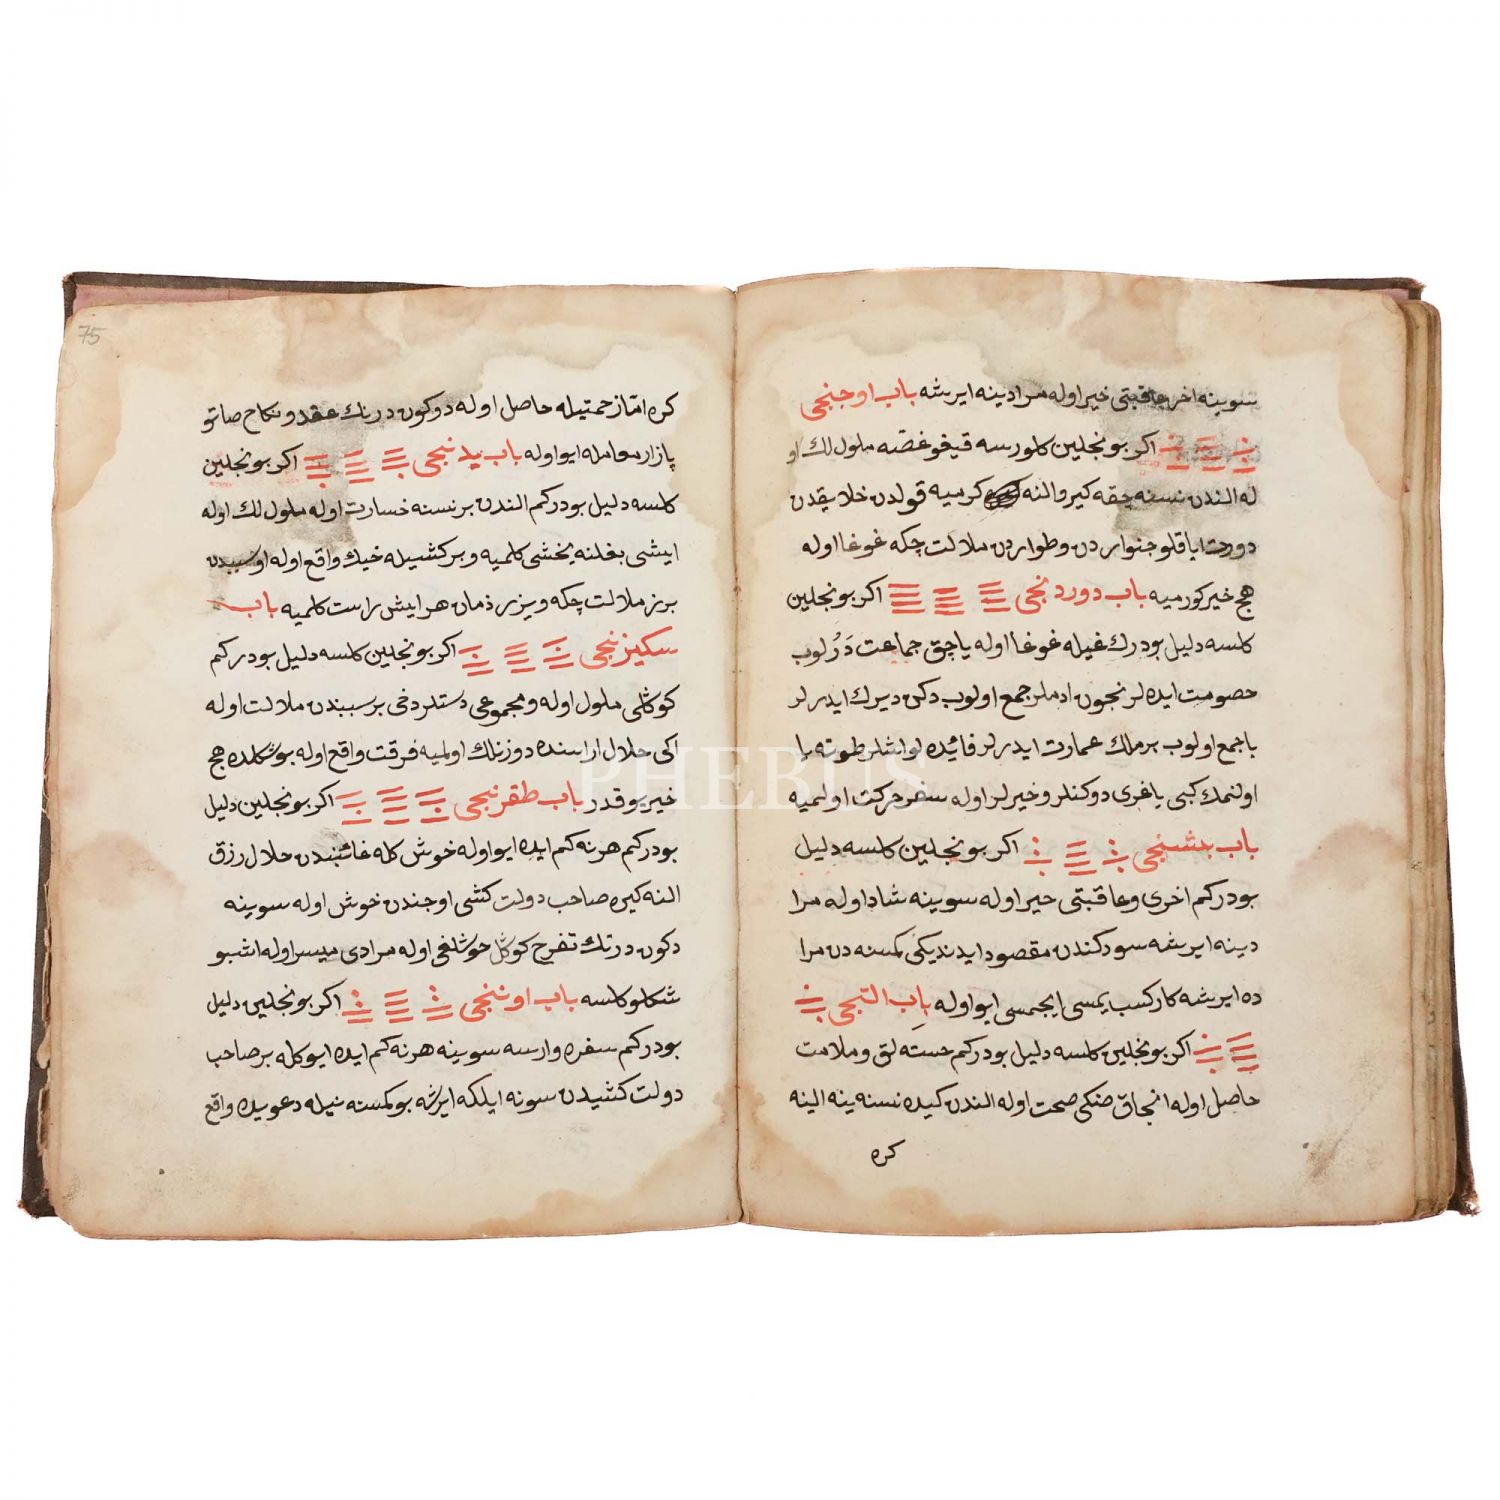 سوينه اخر عاقبتى خير اوله مرادينه ايرشه باب اوجنجى
اكر بونجلين كلورسه قيغو غصّه ملول لك او
له الندن نسنه چقه كيرو النه كرميه قولدن خلايقدن
دورت اياقلو جنواردن وطواردن ملالت چكه غوغا اوله
هج خير كورميه باب دوردنجى اكر بونجلين
كلسه دليل بودرك غيله غوغا اوله ياچق جماعت دَرُلوب
حصومت ايده لر نجون ادملر جمع اولوب دكن ديرك ايدرلر
يا جمع اولوب بر ملك عمارت ايدرلر فائده لو اشلر طوته يا
اولنمك كبى ياغرى دوكنلر وخيرلر اوله سفر حركت اولميه
باب بشنجى اكر بونجلين كلسه دليل
بودركم اخرى وعاقبتى خير اوله سوينه شاد اوله مرا
دينه ايرشه سودكندن مقصود ايدنديكى كمسنه دن مرا
ده ايرشه كار كسب يمسى ايجمسى ايو اوله باب التنجى
اكر بونجلين كلسه دليل بودركم خسته لق وملامت
حاصل اوله انجاق صنكى صحت اوله الندن كيده نسنه ينه الينه
كره
كره امّا زحمتيله حاصل اوله دوكون درنك عقد ونكاح صاتو
پازار معامله ايو اوله باب يدنجى اكر بونجلين
كلسه دليل بودركم الندن بر نسنه خسارت اوله ملول لك اوله
ايشى بغلنه يخشى كلميه وبر كشيله خيك واقع اوله اوسببدن
برز ملالت چكه ويزر ذمان هر ايش راست كلميه باب
سكيزنجى اكر بونجلين كلسه دليل بودركم
كوكلى ملول اوله ومجموعى دستلر دخى بر سببندن ملالت اوله
اكى حلال اراسنده دوزنلك اولميه فرقت واقع اوله بو شكلده هج
خير يوقدر باب طقزنجى اكر بونجلين دليل
بودركم هر نه كم ايده ايو اوله خوش كله غائبندن حلال رزق
النه كيره صاحب دولت كشى اوجندن خوش اوله سوينه
دكون درنك تفرج كوكل خوشلغى اوله مرادى ميسر اوله اشبو
شكلو كلسه باب اوننجى اكر بونجلين دليل
بودركم سفره وارسه سوينه هر نه كم ايده ايو كله بر صاحب
دولت كشيدن سونه ايلكه ايرشه بو كمسنه نيله دعويده واقع
75
PHEBUS